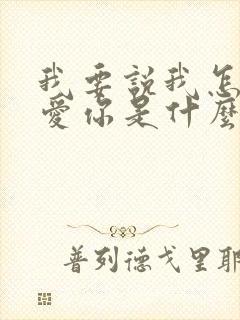 我要說我怎
愛你是什麼
普列德戈里耶